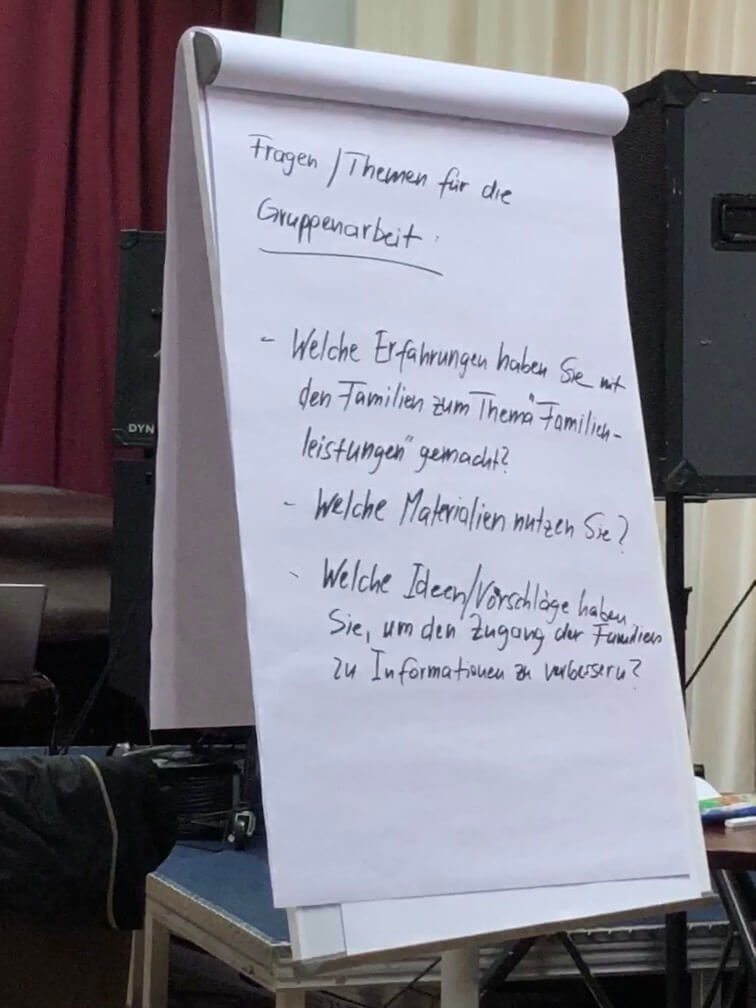 Fragen / Themen für die
Gruppenarbeit:
- Welche Erfahrungen haben Sie mit
den Familien zum Thema "Familien-
leistungen" gemacht?
- Welche Materialien nutzen Sie?
- Welche Ideen/Vorschläge haben
Sie, um den Zugang der Familien
zu Informationen zu verbessern?
DYN